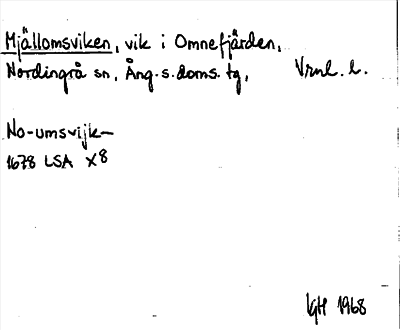 Mjällomsviken, vik i Omnefjärden,
Nordingrå sn, Ång.s.doms.tg, Vrnl. l.
No-umsvijk-
1678 LSA X8
IGH 1968